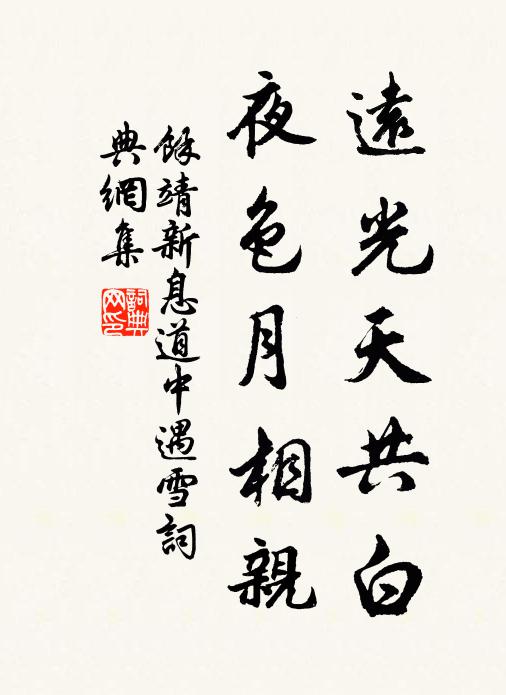 遠光天共白
夜色月相親
餘靖新息道中遇雪詞
典網集
詞典
网印